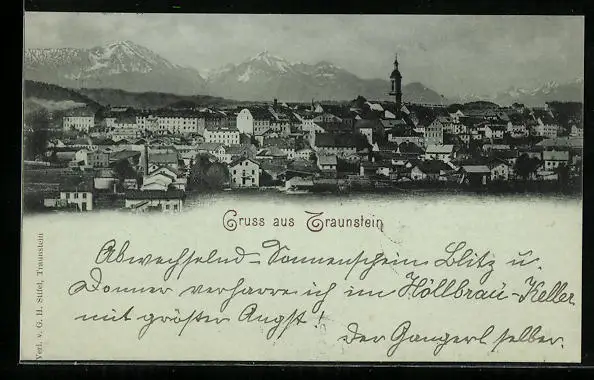 Gruss aus Traunstein
Abwechselnd Sonnenschein Blitz u.
Donner verharre ich im Höllbräu-Keller
mit größter Angst!
Der Gangerl selber.
Verl. v. G. H. Stifel, Traunstein